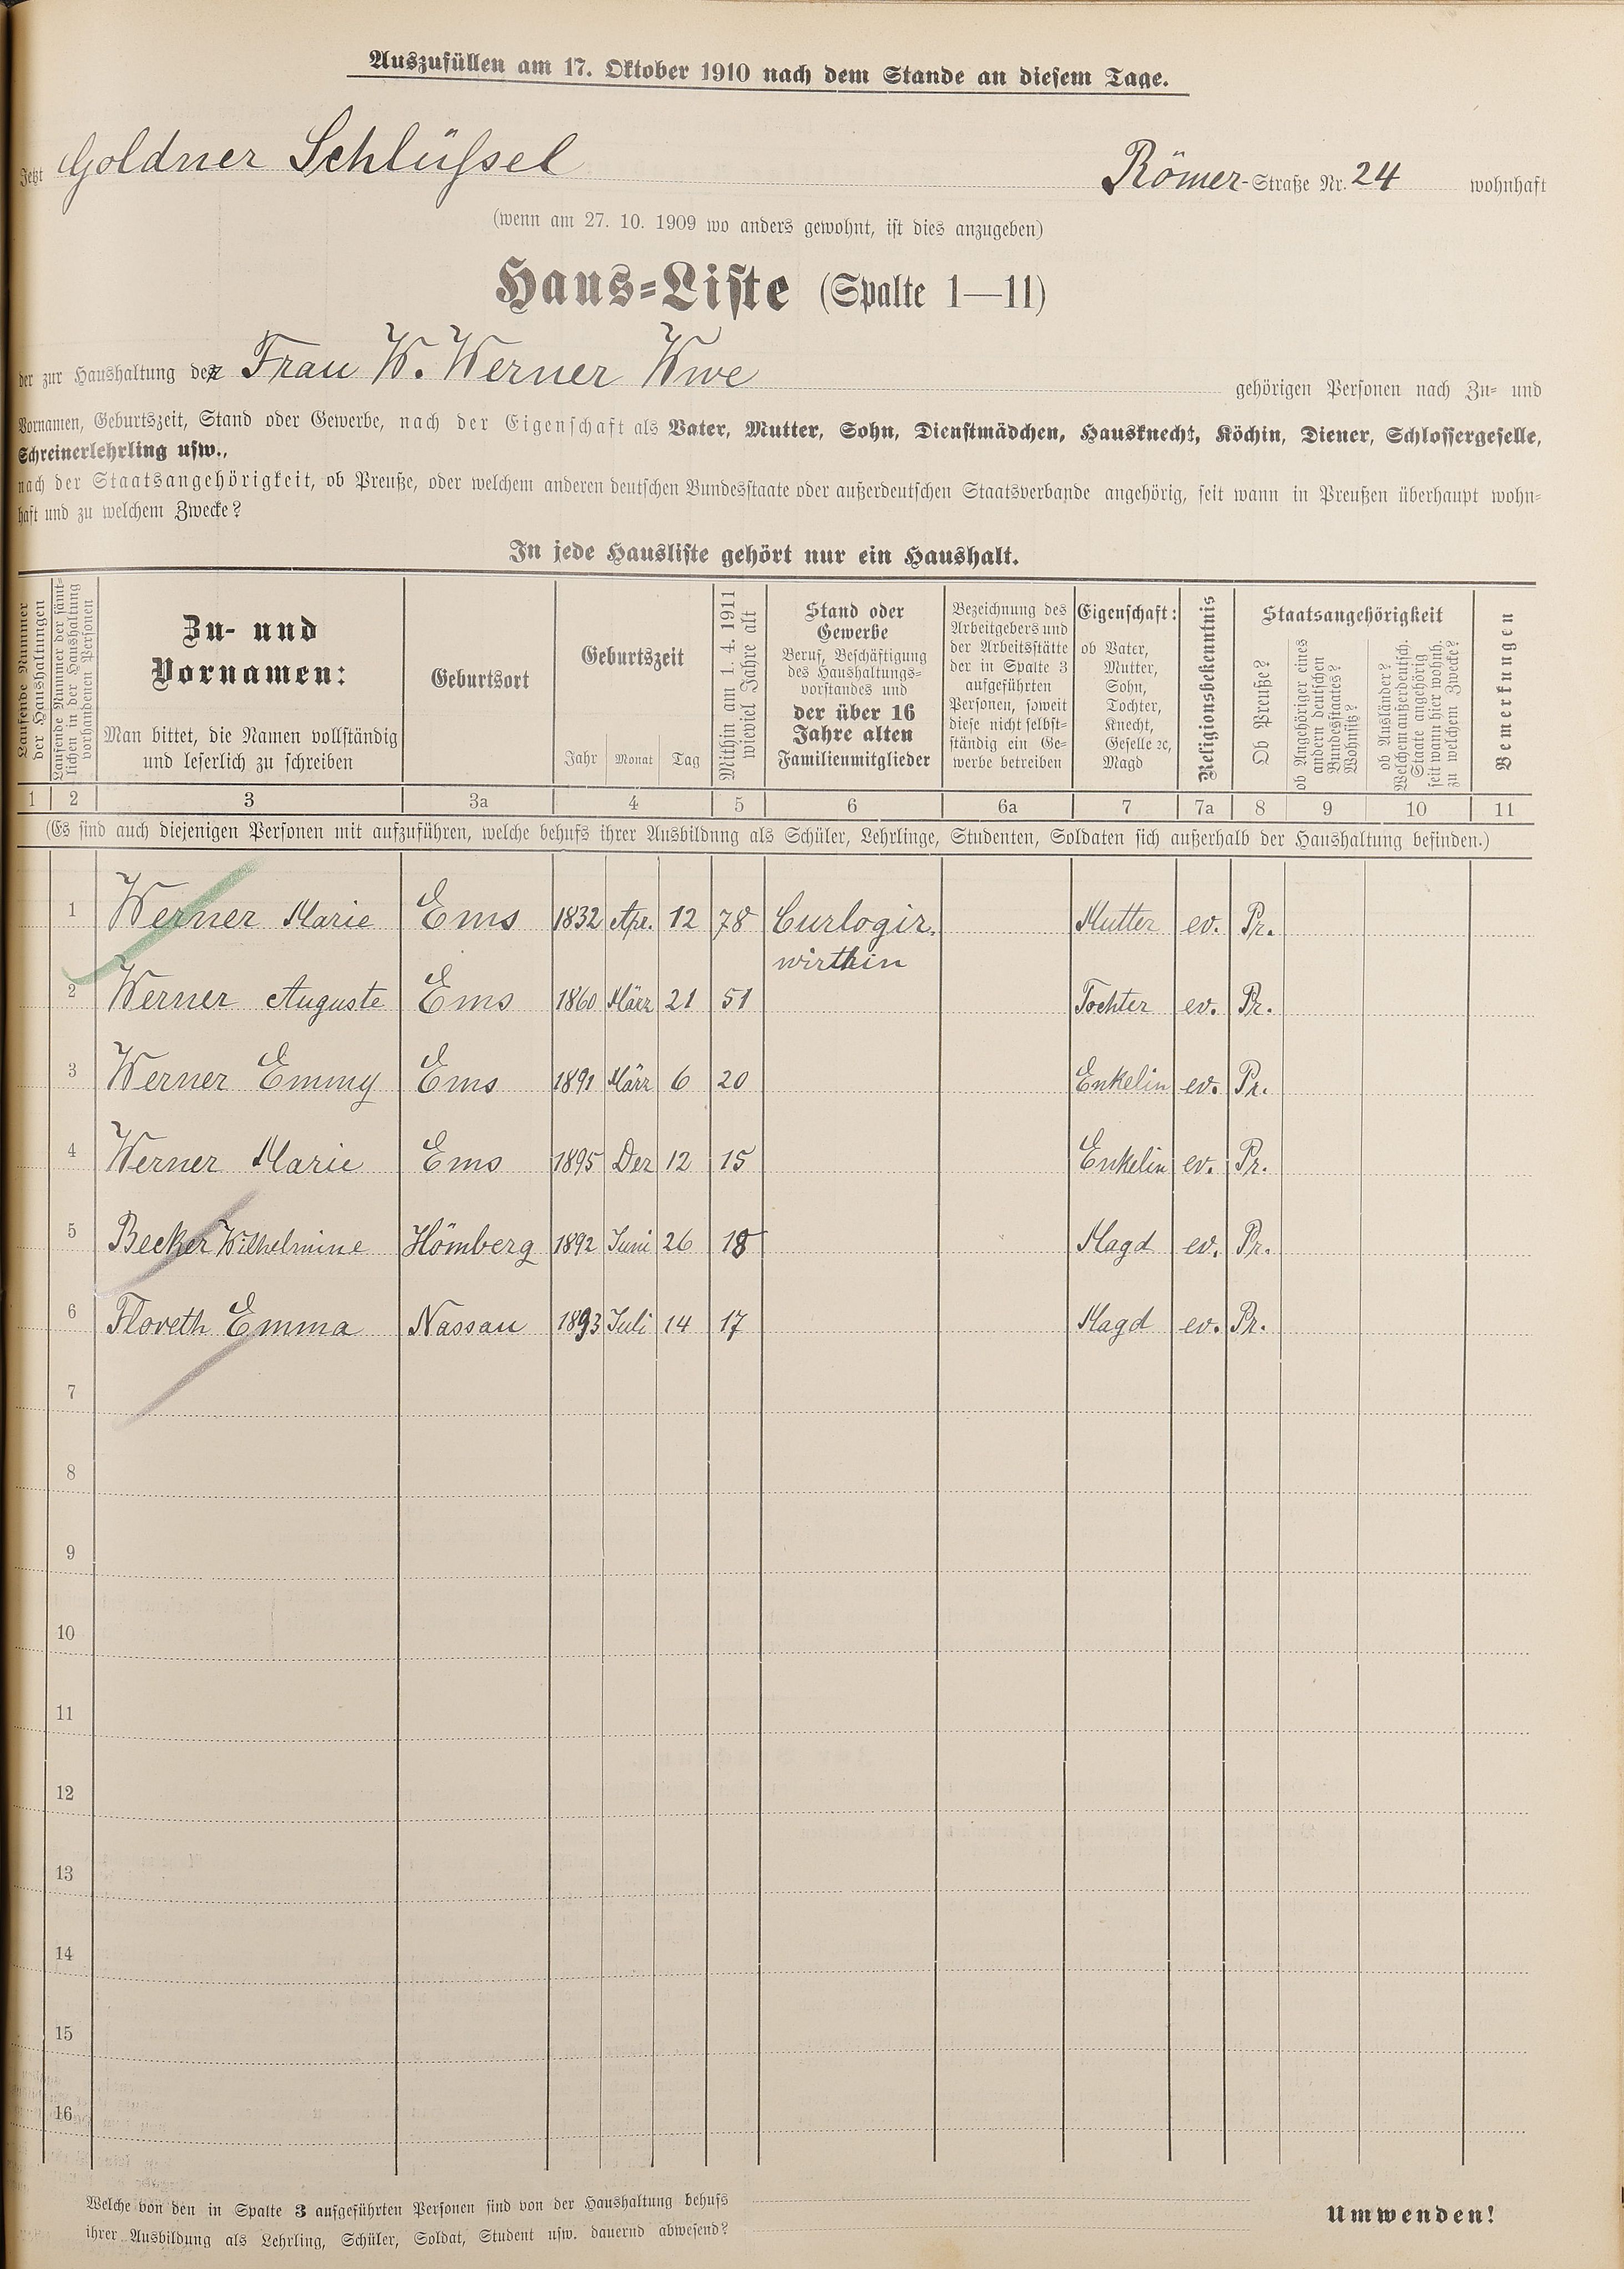 Auszufüllen am 17. Oktober 1910 nach dem Stande an diesem Tage.
Jetzt Goldner Schlüßsel Römer-Straße Nr. 24 wohnhaft
(wenn am 27. 10. 1909 wo anders gewohnt, ist dies anzugeben)
Haus-Liste (Spalte 1—11)
der zur Haushaltung der Frau W. Werner Wwe gehörigen Personen nach Zu- und
Vornamen, Geburtszeit, Stand oder Gewerbe, nach der Eigenschaft als Vater, Mutter, Sohn, Dienstmädchen, Hausknecht, Köchin, Diener, Schlossergeselle,
Schreinerlehrling usw.,
nach der Staatsangehörigkeit, ob Preuße, oder welchem anderen deutschen Bundesstaate oder außerdeutschen Staatsverbande angehörig, seit wann in Preußen überhaupt wohn-
haft und zu welchem Zwecke?
In jede Hausliste gehört nur ein Haushalt.
Laufende Nummer
der Haushaltungen
Laufende Nummer der sämt-
lichen in der Haushaltung
vorhandenen Personen
Zu- und
Vornamen:
Man bittet, die Namen vollständig
und leserlich zu schreiben
Geburtsort
Geburtszeit
Jahr Monat Tag
Mithin am 1. 4. 1911
wieviel Jahre alt
Stand oder
Gewerbe
Beruf, Beschäftigung
des Haushaltungs-
vorstandes und
der über 16
Jahre alten
Familienmitglieder
Bezeichnung des
Arbeitgebers und
der Arbeitsstätte
der in Spalte 3
aufgeführten
Personen, soweit
diese nicht selbst-
ständig ein Ge-
werbe betreiben
Eigenschaft:
ob Vater,
Mutter,
Sohn,
Tochter,
Knecht,
Geselle ꝛc,
Magd
Religionsbekenntnis
Staatsangehörigkeit
Ob Preuße?
ob Angehöriger eines
andern deutschen
Bundesstaates?
Wohnsitz?
ob Ausländer?
Welchem außerdeutsch.
Staate angehörig
seit wann hier wohnh.
zu welchem Zwecke?
Bemerkungen
1 2 3 3a 4 5 6 6a 7 7a 8 9 10 11
(Es sind auch diejenigen Personen mit aufzuführen, welche behufs ihrer Ausbildung als Schüler, Lehrlinge, Studenten, Soldaten sich außerhalb der Haushaltung befinden.)
1 Werner Marie Ems 1832 Apr. 12 78 Curlogir. Mutter ev. Pr.
wirthin
2 Werner Auguste Ems 1860 März 21 51 Tochter ev. Pr.
3 Werner Emmy Ems 1891 März 6 20 Enkelin ev. Pr.
4 Werner Marie Ems 1895 Dez 12 15 Enkelin ev. Pr.
5 Becker Wilhelmine Hömberg 1892 Juni 26 18 Magd ev. Pr.
6 Floreth Emma Nassau 1893 Juli 14 17 Magd ev. Pr.
7
8
9
10
11
12
13
14
15
16
Welche von den in Spalte 3 aufgeführten Personen sind von der Haushaltung behufs
ihrer Ausbildung als Lehrling, Schüler, Soldat, Student usw. dauernd abwesend?
Umwenden!